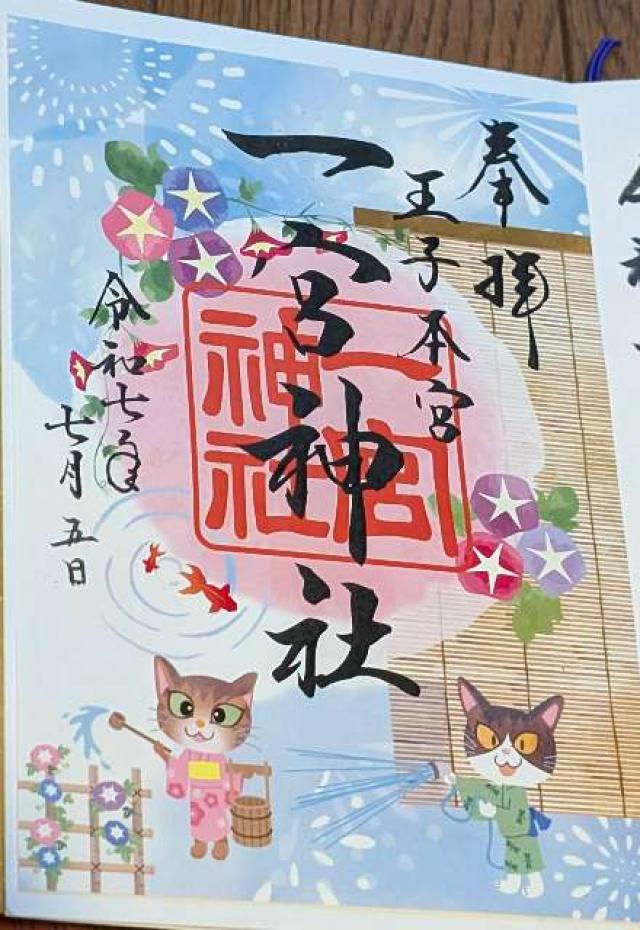 奉拝
王子本宮
一宮神社
一宮
神社
令和七年
七月五日